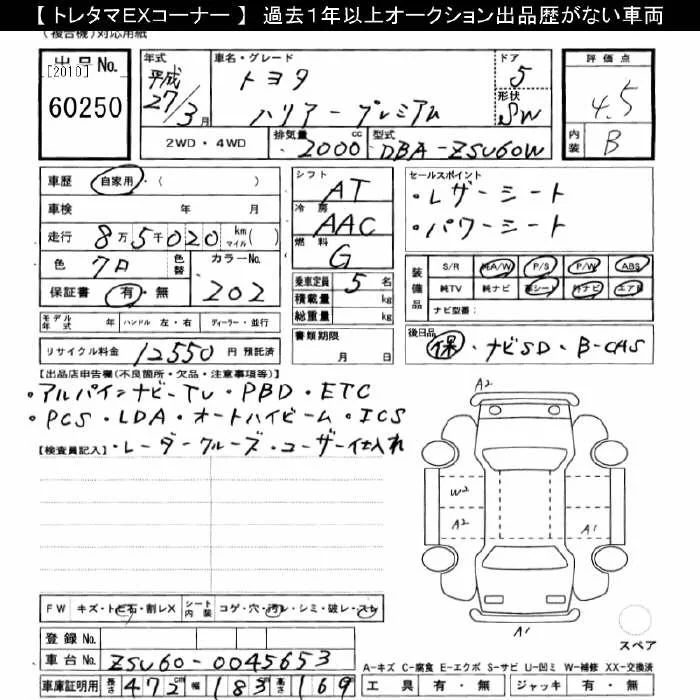 【 トレタマEXコーナー 】 過去1年以上オークション出品歴がない車両
(複合機)対応用紙
出品No.
[2010]
60250
年式
平成
27/3月
車名・グレード
トヨタ
ハリアー プレミアム
ドア
5
形状
SW
評価点
4.5
内装
B
2WD・4WD
排気量
2000
cc
型式
DBA-ZSU60W
車歴 自家用・( )
車検 年 月
走行 8万5千020 km マイル( )
色 クロ 色替 カラーNo. 202
保証書 有・無
シフト AT
冷房 AAC
燃料 G
乗車定員 5 名
積載量 kg
総重量 kg
書類期限
月 日
セールスポイント
・レザーシート
・パワーシート
装備品
S/R 純A/W P/S P/W ABS
純TV 純ナビ 革シート 外ナビ エアB
ナビ型番:
モデル年式 年 ハンドル 左・右 ディーラー・並行
リサイクル料金 12550 円 預託済
後日品
保・ナビSD・B-CAS
【出品店申告欄(不良箇所・欠品・注意事項等)】
・アルパインナビ-TV・PBD・ETC
・PCS・LDA・オートハイビーム・ICS
・レーダークルーズ・ユーザー仕入れ
【検査員記入】
A2
W2
A2
A1
A1
スペア
FW キズ・トビ石・割レX シート内装 コゲ・穴・汚レ・シミ・破レ・スレ
登録No.
車台No. ZSU60-0045653
車庫証明用 長さ 472 cm 幅 183 cm 高さ 169
A-キズ C-腐食 E-エクボ S-サビ U-凹ミ W-補修 XX-交換済
工具 有・無 ジャッキ 有・無